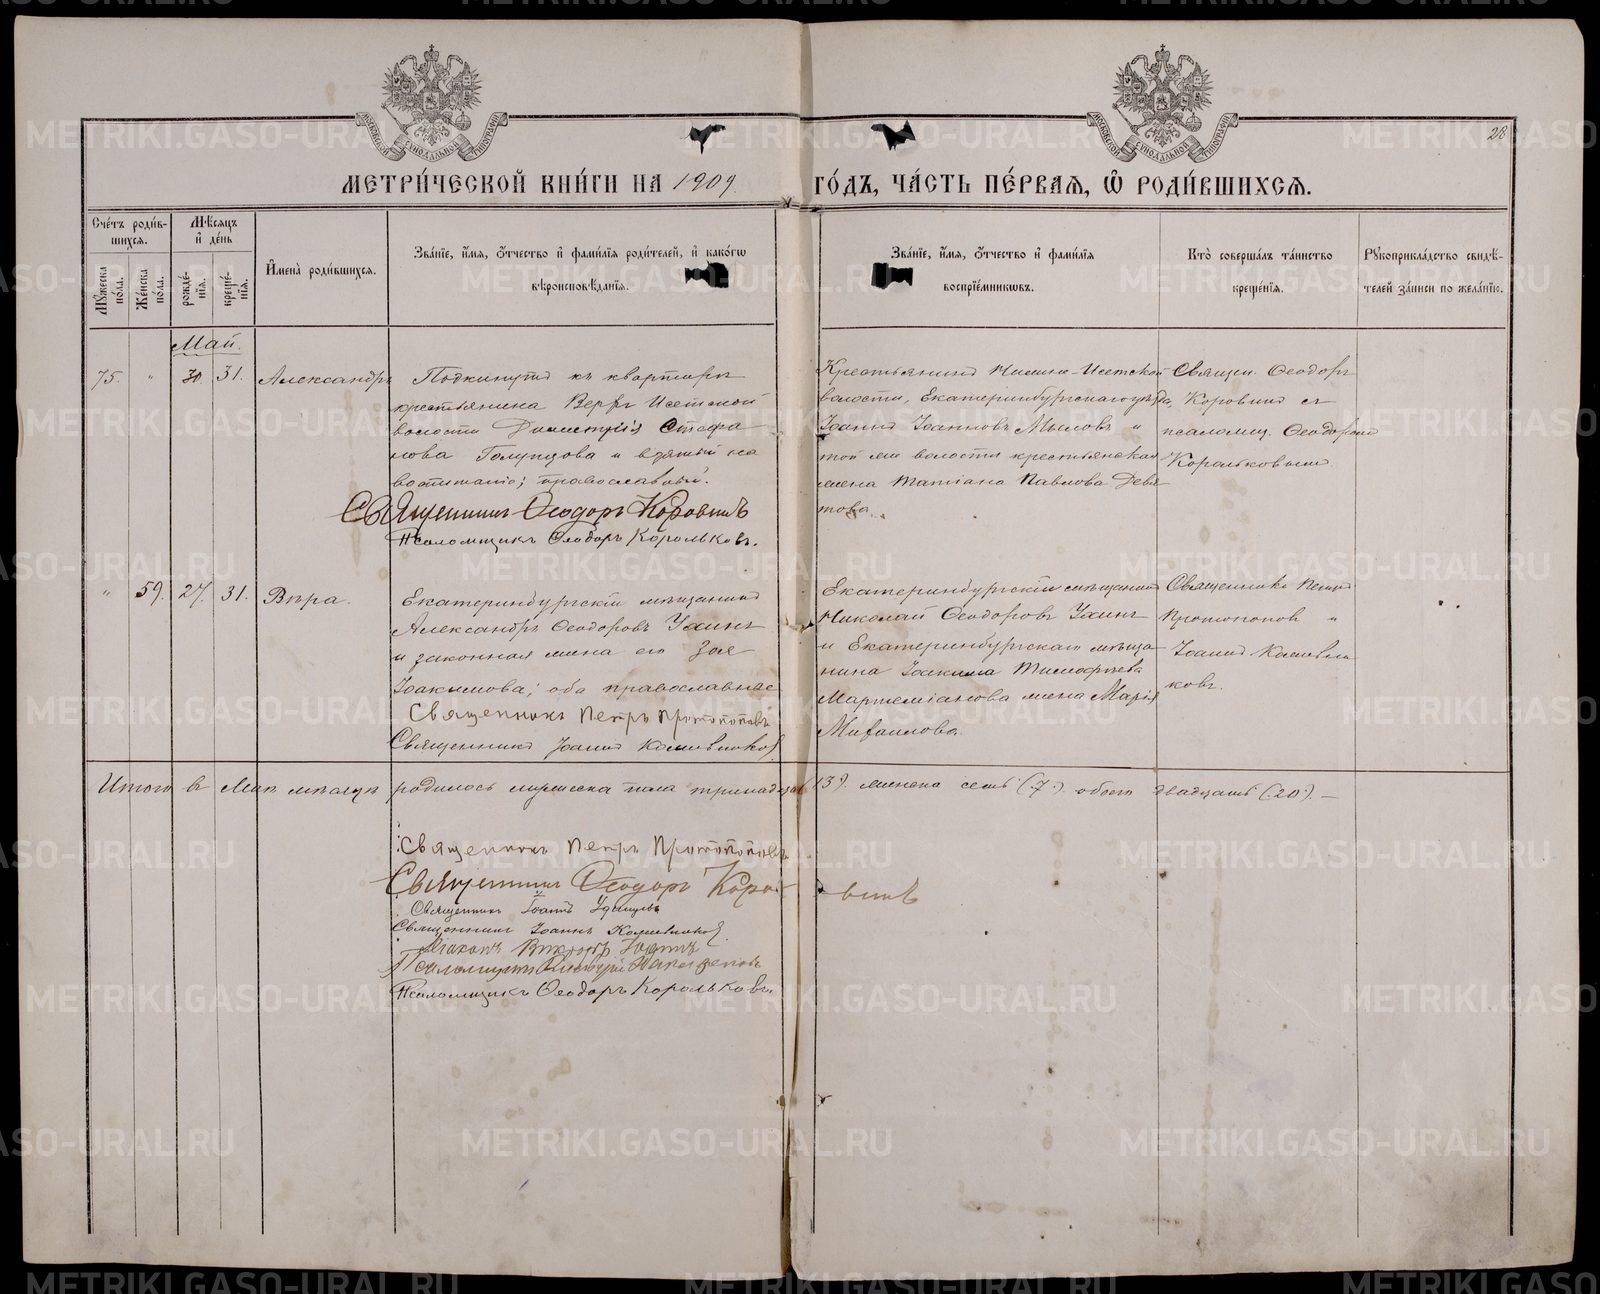 28
МЕТРИ́ЧЕСКОЙ КНИ́ГИ НА 1909 ГО́ДЪ, ЧА́СТЬ ПЕ́РВАЯ, Ѡ РОДИ́ВШИХСЯ.
Сче́тъ роди́в-
шихся.
Мꙋ́жеска по́ла.
Же́нска по́ла.
Мѣ́сяцъ
и҆ де́нь
рожде́-
нїя.
креще́-
нїя.
И҆мена̀ роди́вшихся.
Зва́нїе, и҆́мя, ѻ҆́тчество и҆ фами́лїя роди́телей, и҆ како́гѡ
вѣроисповѣ́данїя.
Зва́нїе, и҆́мя, ѻ҆́тчество и҆ фами́лїя
воспрїе́мниковъ.
Кто̀ соверша́лъ та́инство
креще́нїя.
Рꙋкоприкла́дство свидѣ́-
телей за́писи по жела́нїю.
Май.
75. " 30. 31. Александръ
Подкинутъ къ квартирѣ
крестьянина Верхъ Исетской
волости Димитрія Стефа
нова Голунцова и взятый на
воспитаніе; православный.
Священникъ Ѳеодоръ Коровинъ
Псаломщикъ Ѳеодоръ Корольковъ.
Крестьянинъ Нижне-Исетской
волости, Екатеринбургскаго уѣзда,
Іоаннъ Іоанновъ Мыловъ и
той же волости крестьянская
жена Татіана Павлова Девя
това.
Священ. Ѳеодоръ
Коровинъ съ
псаломщ. Ѳеодоромъ
Корольковымъ
" 59. 27. 31. Вѣра.
Екатеринбургскій мѣщанинъ
Александръ Ѳеодоровъ Ухинъ
и законная жена его Зоя
Іоакимова; оба православные
Священникъ Петръ Протопоповъ
Священникъ Іоаннъ
Екатеринбургскій мѣщанинъ
Николай Ѳеодоровъ Ухинъ
и Екатеринбургскаго мѣща-
нина Іоакима Тимофѣева
Мартеміанова жена Марія
Михаилова.
Священники Петръ
Протопоповъ и
Іоаннъ
ковъ.
Итого въ Маѣ мѣсяцѣ родилось мужеска пола тринадцать (13). женска семь (7). обоего двадцать (20). —
Священникъ Петръ Протопоповъ
Священникъ Ѳеодоръ Коровинъ
Священникъ Іоаннъ
Священникъ Іоаннъ
Діаконъ Викторъ
Псаломщикъ
Псаломщикъ Ѳеодоръ Корольковъ.
METRIKI.GASO-URAL.RU